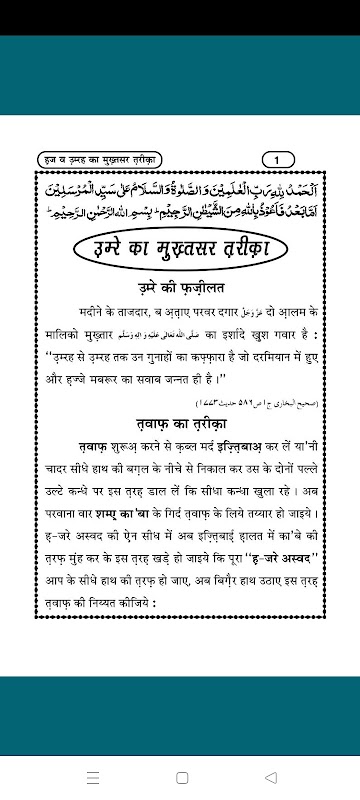 हज व उ़म्रह का मुख़्तसर त़रीक़ा
1
اَلْحَمْدُ لِلّٰهِ رَبِّ الْعٰلَمِيْنَ وَالصَّلٰوةُ وَالسَّلَامُ عَلٰى سَيِّدِ الْمُرْسَلِيْنَ
اَمَّا بَعْدُ فَاَعُوْذُ بِاللّٰهِ مِنَ الشَّيْطٰنِ الرَّجِيْمِ ؕ بِسْمِ اللّٰهِ الرَّحْمٰنِ الرَّحِيْمِ ؕ
उ़म्रे का मुख़्तसर त़रीक़ा
उ़म्रे की फ़ज़ीलत
मदीने के ताजदार, ब अ़त़ाए परवर दगार عَزَّوَجَلَّ दो आ़लम के
मालिको मुख़्तार صَلَّى اللّٰهُ تَعَالٰى عَلَيْهِ وَاٰلِهٖ وَسَلَّم का इर्शादे ख़ुश गवार है :
“उ़म्रह से उ़म्रह तक उन गुनाहों का कफ़्फ़ारा है जो दरमियान में हुए
और ह़ज्जे मबरूर का सवाब जन्नत ही है ।”
(صحیح البخاری ج١ ص٥٨٦ حدیث ١٧٧٣)
त़वाफ़ का त़रीक़ा
त़वाफ़ शुरूअ़ करने से क़ब्ल मर्द इज़्त़िबाअ़ कर लें या'नी
चादर सीधे हाथ की बग़ल के नीचे से निकाल कर उस के दोनों पल्ले
उल्टे कन्धे पर इस त़रह़ डाल लें कि सीधा कन्धा खुला रहे । अब
परवाना वार शम्ए़ का'बा के गिर्द त़वाफ़ के लिये तय्यार हो जाइये ।
ह़-जरे अस्वद की ऐ़न सीध में अब इज़्त़िबाई़ ह़ालत में का'बे की
त़रफ़ मुंह कर के इस त़रह़ खड़े हो जाइये कि पूरा “ह़-जरे अस्वद”
आप के सीधे हाथ की त़रफ़ हो जाए, अब बिग़ैर हाथ उठाए इस त़रह़
त़वाफ़ की निय्यत कीजिये :